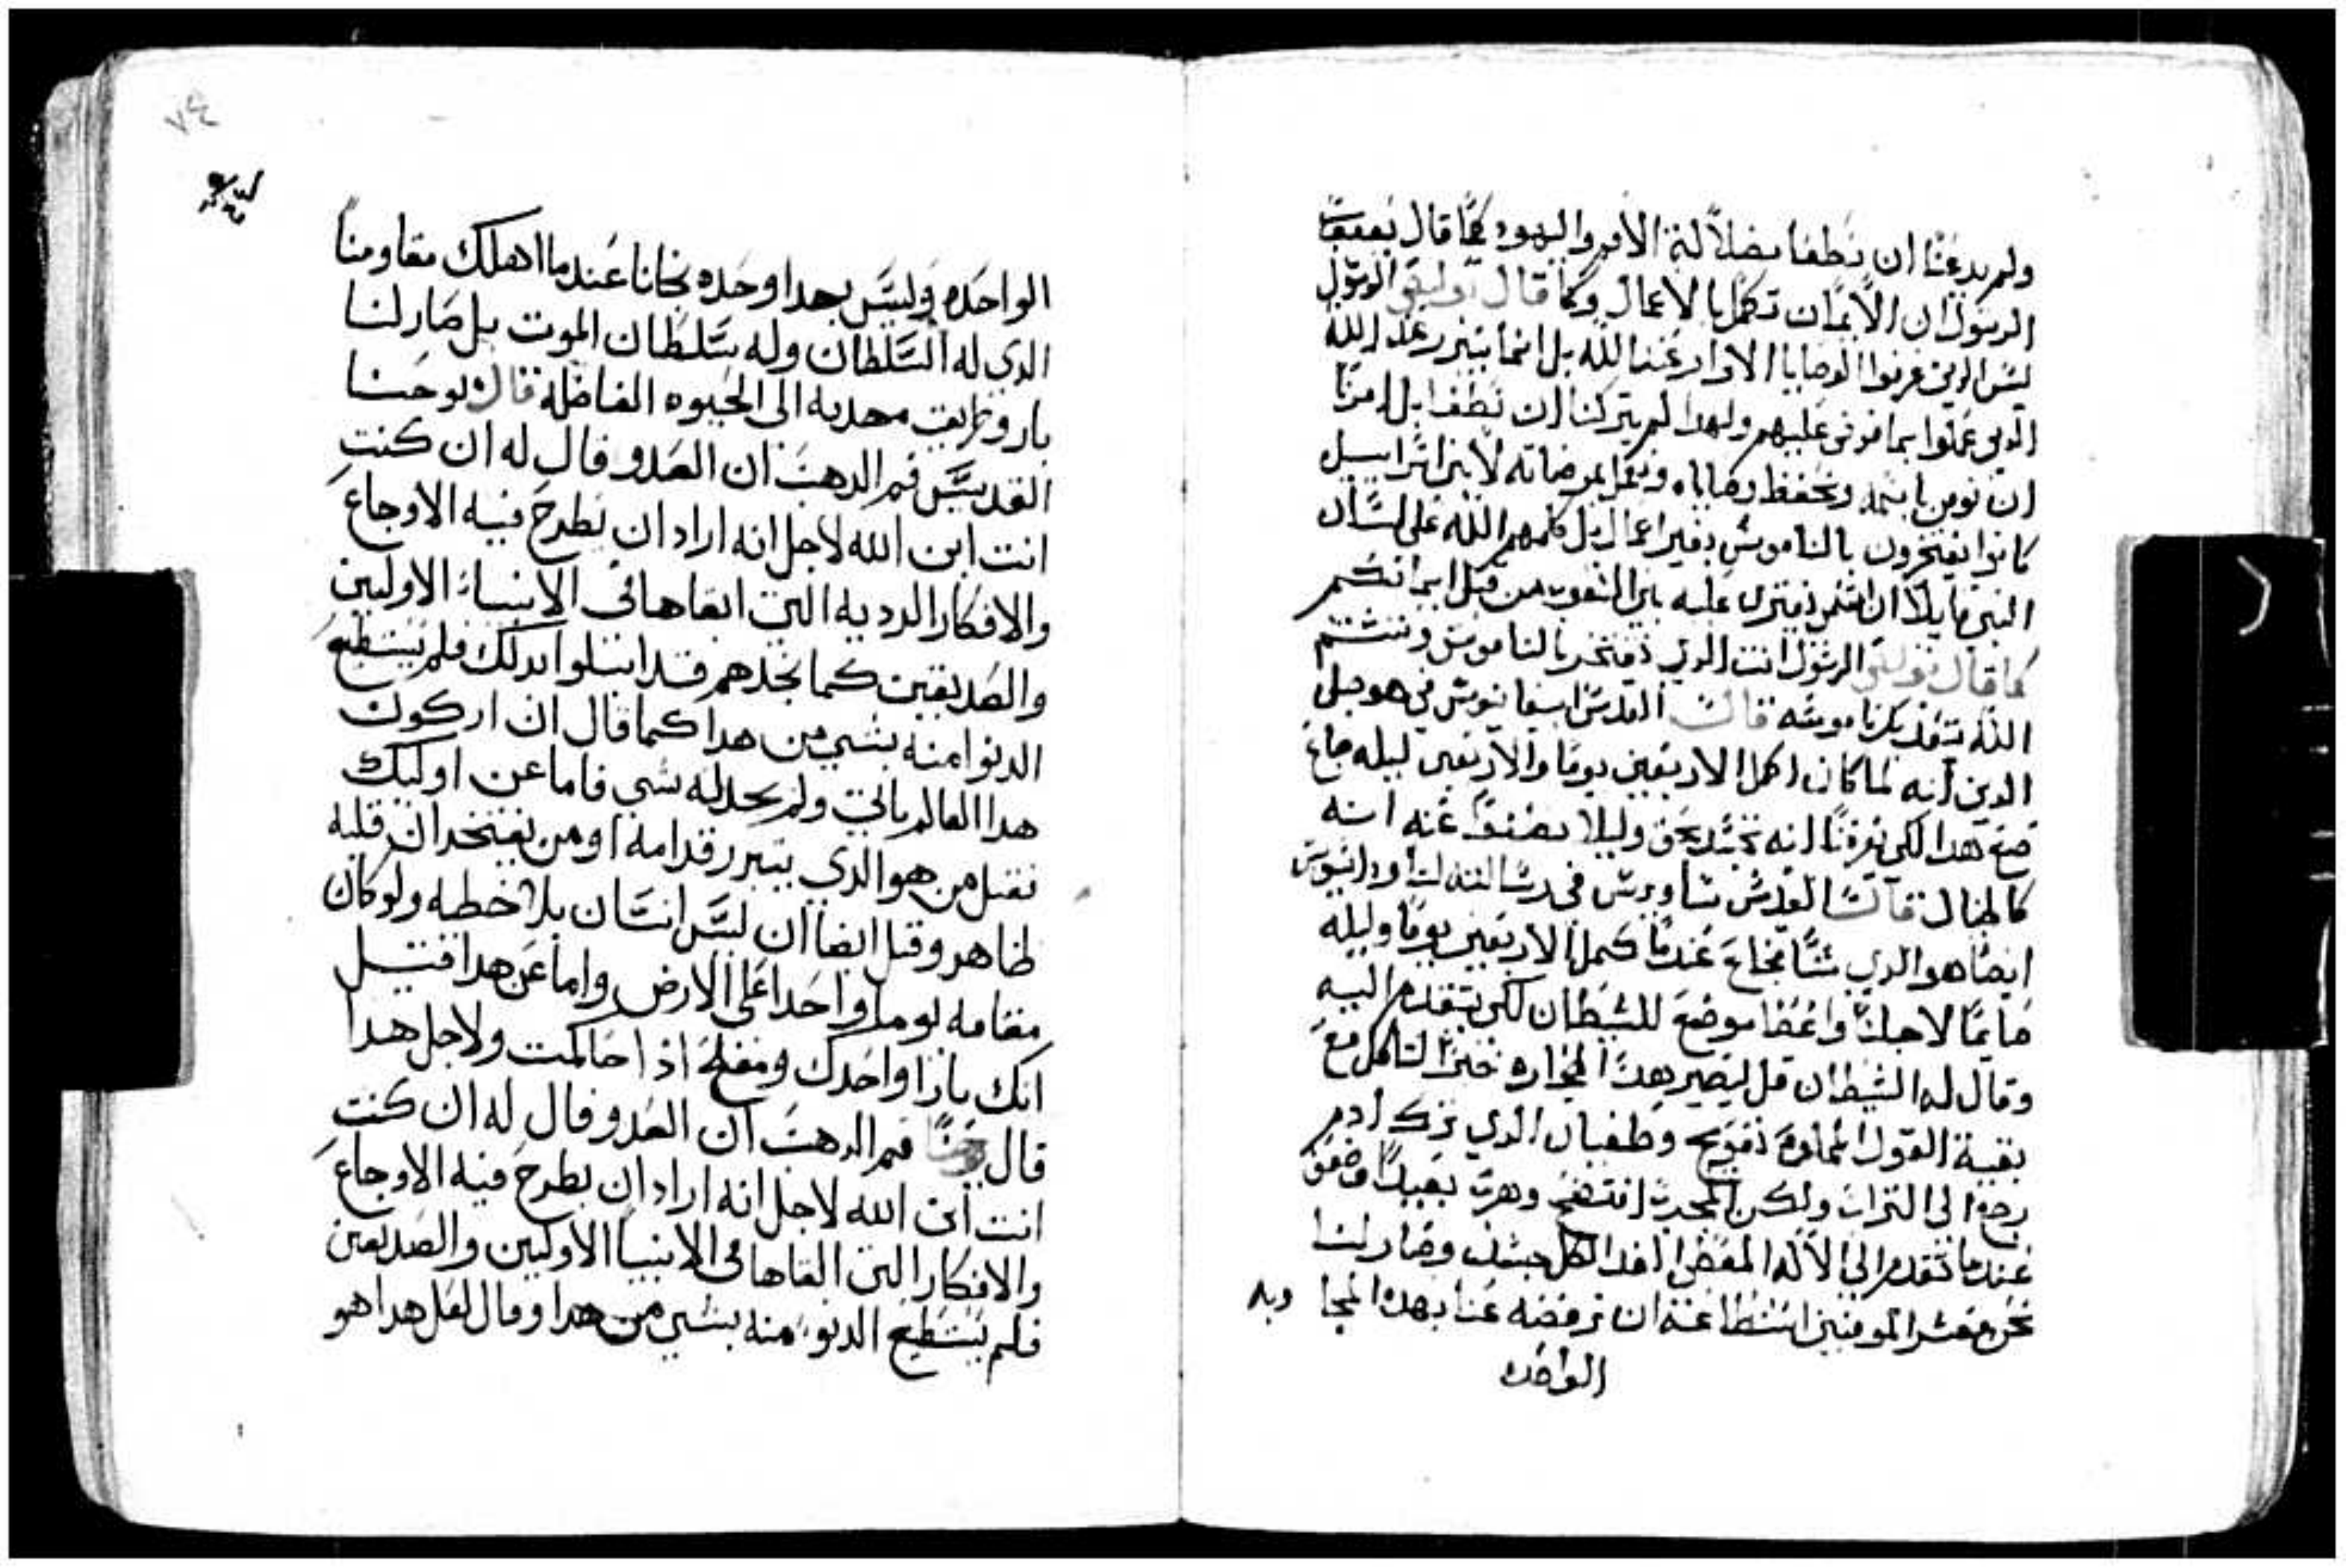 ولم يدعنا ان نطغا بضلالة الامم واليهود كما قال يعقوب
الرسول ان الايمان تكمل بالاعمال وكما قال بولس الرسول
ليس الدين عرفوا الوصايا ابرار عند الله بل انما يتبرر عند الله
الدين عملوا بما فرض عليهم ولهدا لم يتركنا ان نطغا بل امرنا
ان نومن باسمه ونحفظ وصاياه ونعمل بمرضاته لان اسراييل
كانوا يفتخرون بالناموس بغير اعمال بل كلمهم الله على لسان
النبي قايلا ان اسمي يفترى عليه بين الشعوب من قبل
كما قال بولس الرسول انت الدي تفتخر بالناموس وتشتم
الله بتعديك ناموسه قال القديس ابيفانيوس في هو جلي
الدين انه لما كان اكمل الاربعين يوما والاربعين ليله جاع
صنع هدا لكي يعرفنا انه تجسد بحق وليلا يظنوا عنه انه
كالخيال قال القديس ساويرس في رسالته
ايضا هو الدي شا جاع عندما كمل الاربعين يوما وليله
صايما لاجلنا واعطا موضع للشيطان لكي يتقدم اليه
وقال له الشيطان قل لتصير هده الحجاره خبزا لتاكل مع
بقية القول المملوة توبيخ وطغيان الدي ترك ادم
رجع الى التراب ولكن المجرب افتضح وهرب بعيدا
عندما تقدم الى الاله المعطي الغدا لكل جسد وصار لنا
نحن معشر المومنين استطاعة ان نرفضه عنا بهده
الواحده
الواحده وليس بهدا وحده نجانا عندما اهلك مقاومنا
الدي له السلطان وله سلطان الموت بل صار لنا
بار وطريق محديه الى الحيوه الفاضلة قال يوحنا
القديس فم الدهب ان العدو قال له ان كنت
انت ابن الله لاجل انه اراد ان يطرح فيه الاوجاع
والافكار الرديه التي القاها في الانبياء الاولين
والصديقين كما نجدهم قد ابتلوا بدلك فلم يستطيع
الدنوا منه بشي من هدا كما قال ان اركون
هدا العالم ياتي ولم يجد له شي فاما عن اوليك
فقيل من هو الدي يتبرر قدامه او من يفتخر ان قلبه
طاهر وقيل ايضا ان ليس انسان بلا خطيه ولو كان
مقامه يوما واحدا على الارض واما عن هدا فقيل
انك بارا واحدك ومفلح اذا حاكمت ولاجل هدا
قال يوحنا فم الدهب ان العدو قال له ان كنت
انت ابن الله لاجل انه اراد ان يطرح فيه الاوجاع
والافكار التي القاها في الانبيا الاولين والصديقين
فلم يستطيع الدنو منه بشي من هدا وقال لعل هدا هو